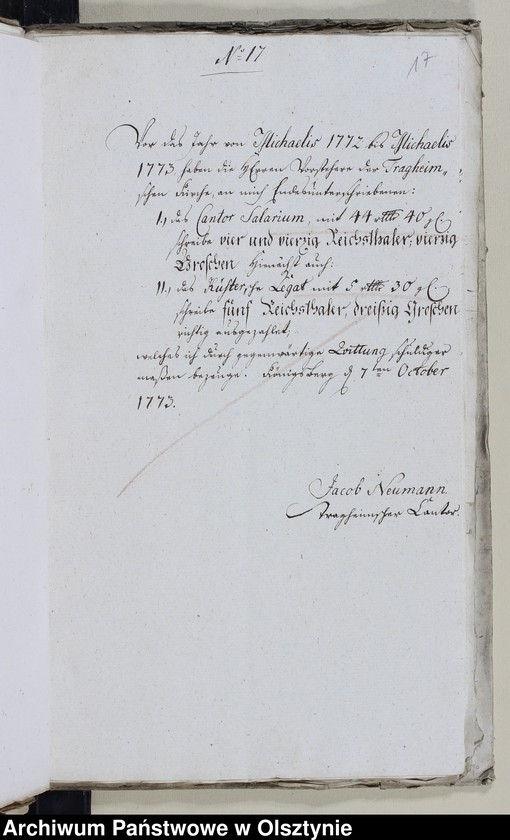 No 17
17
Vor das Jahr von Michaelis 1772 bis Michaelis
1773 haben die HErren Vorstehere der Tragheim-
schen Kirche, an mich Endesunterschriebenen:
I., das Cantor Salarium, mit 44 rthlr 40 gl.
schreibe vier und vierzig Reichsthaler, vierzig
Groschen hienächst auch:
II., das Küster, sche Legat mit 5 rthlr 30 gl.
schreibe fünf Reichsthaler, dreißig Groschen
richtig ausgezahlet,
welches ich durch gegenwärtige Quittung, schuldiger
maßen bezeuge. Königsberg d 7ten October
1773.
Jacob Neumann
Tragheimscher Cantor.
Archiwum Państwowe w Olsztynie